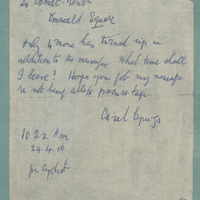 To Comdt.
Emerald Square
Only 4 more has turned up in
addition to the messenger. What time shall
I leave? Hope you got my message
re not being able to procure
10.22 Am
24.4.16
per Cyclist